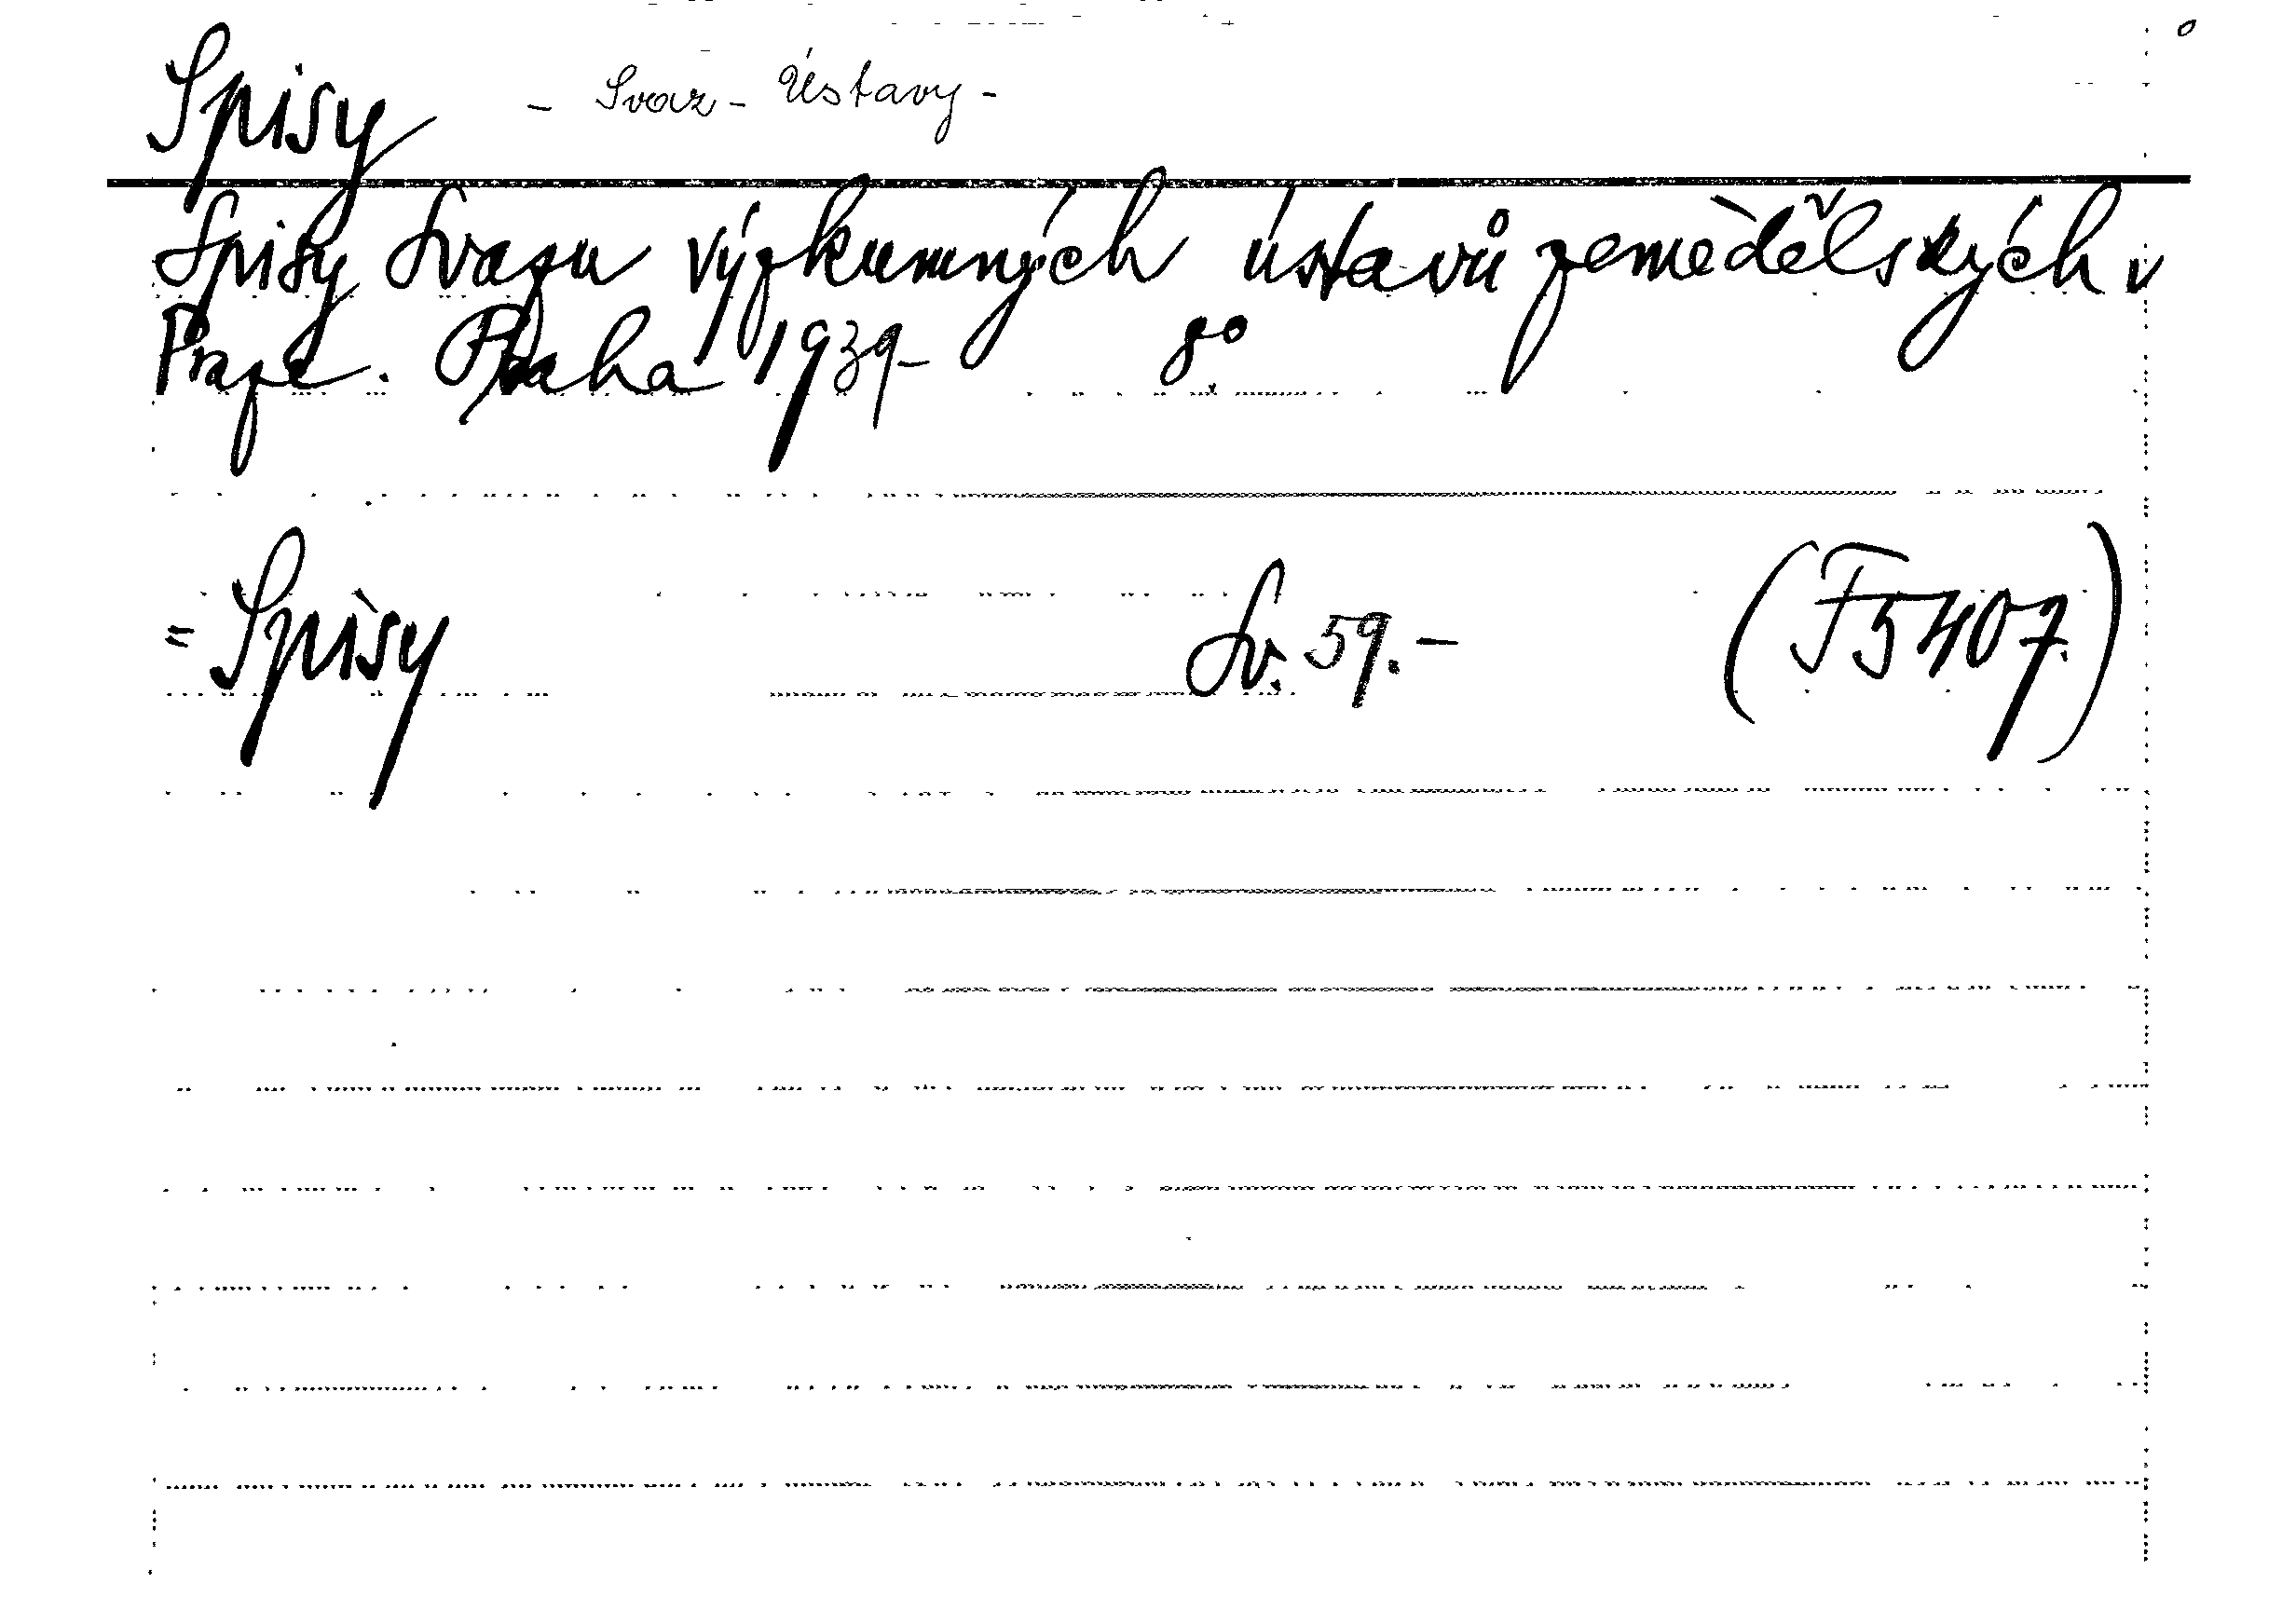 Spisy - Svaz - Ústavy -
Spisy Svazu výzkumných ústavů zemědělských v
Praze. Praha 1939- 8°
= Spisy Sv. 59.- (F5407.)